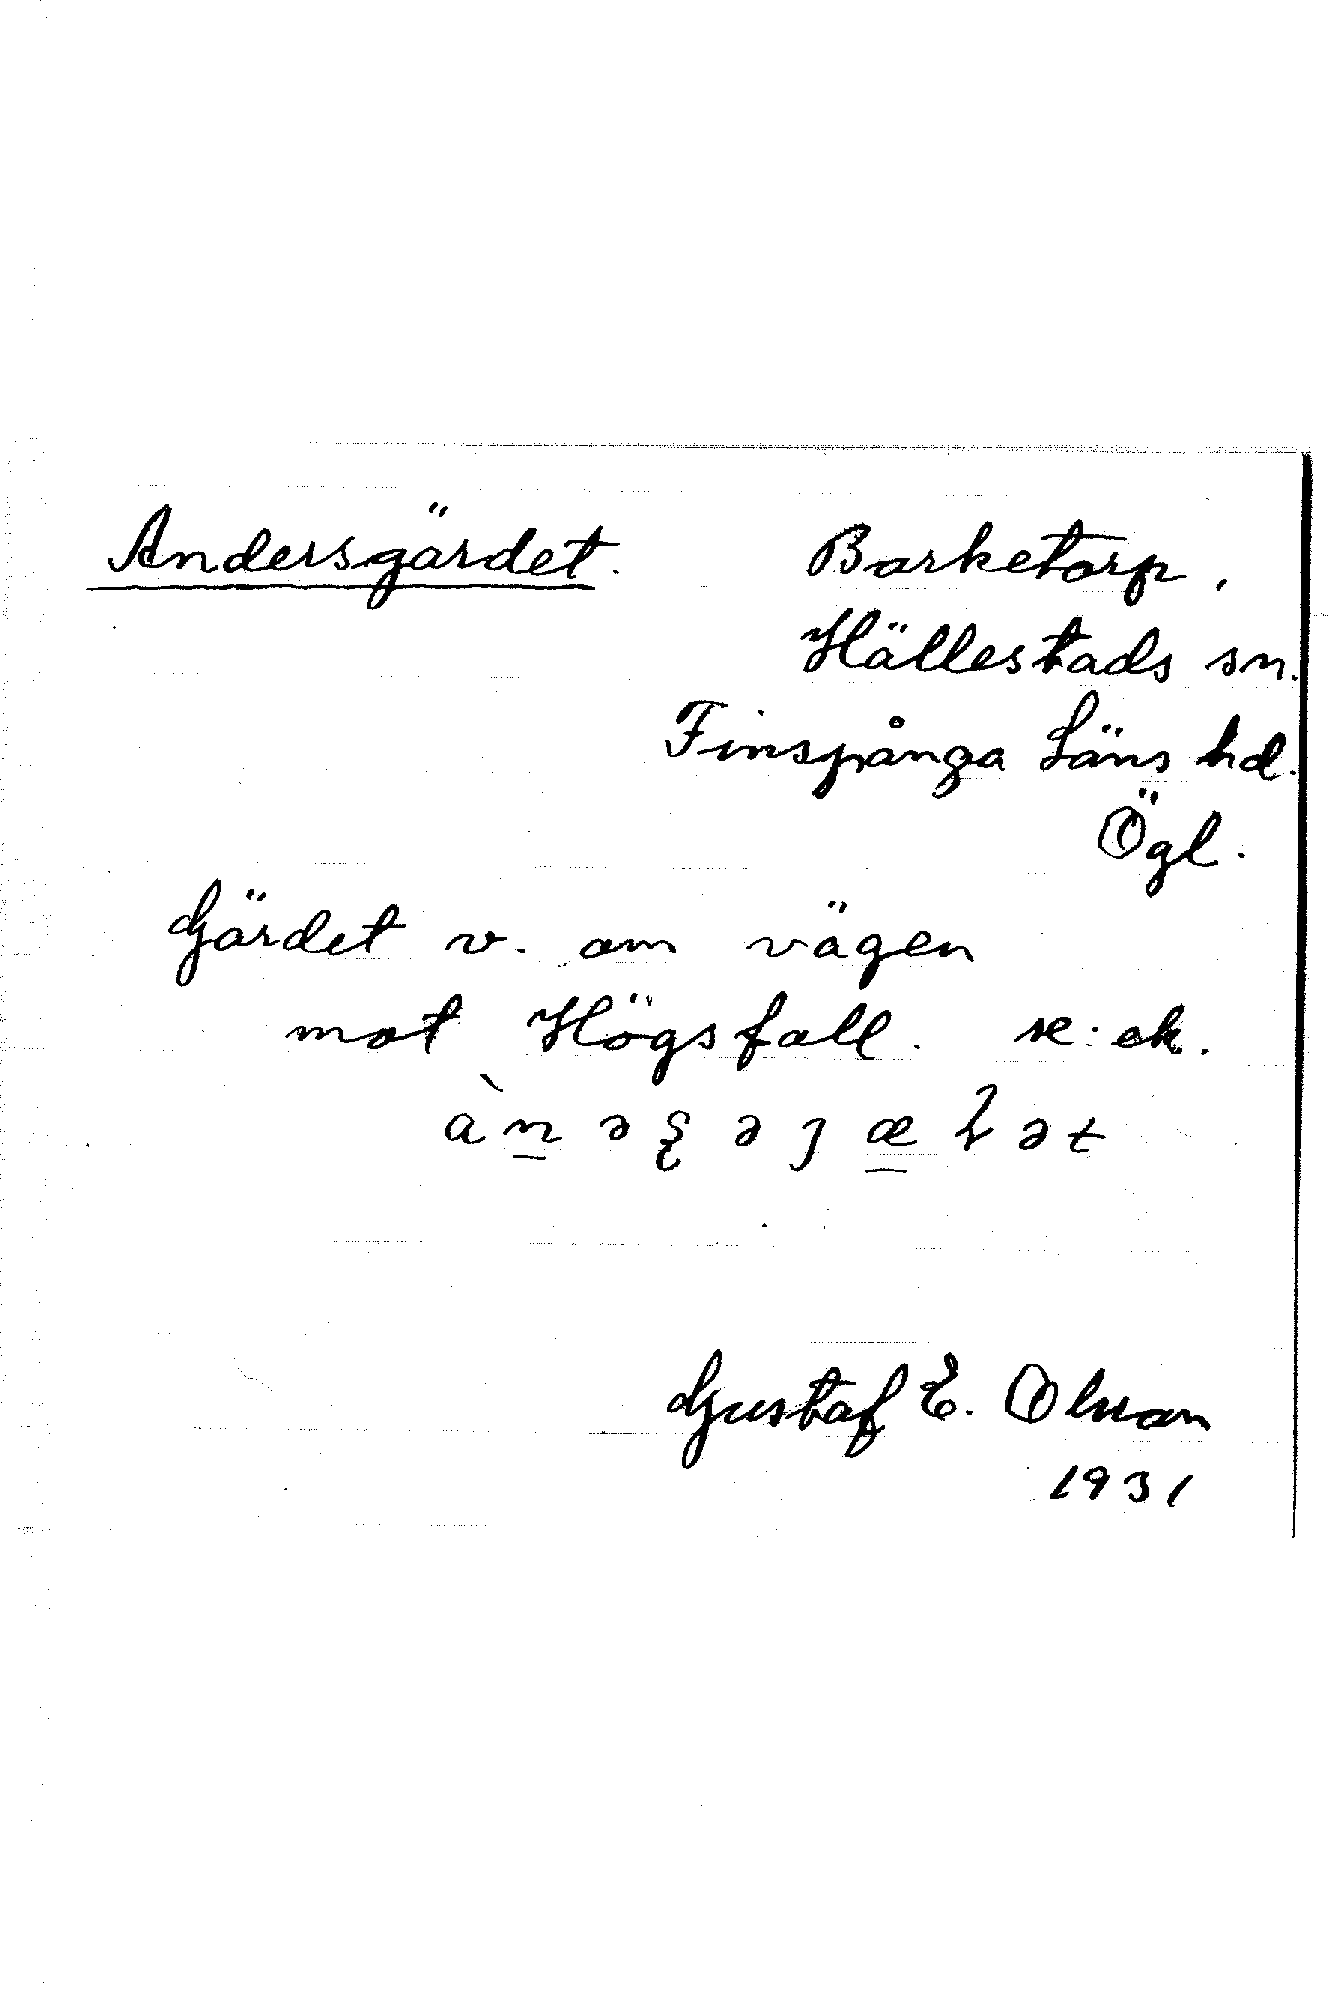 Andersgärdet. Barketorp,
Hällestads sn.
Finspånga Läns hd.
Ögl.
Gärdet v. om vägen
mot Högsfall. se: ek.
Gustaf E. Olsson
1931